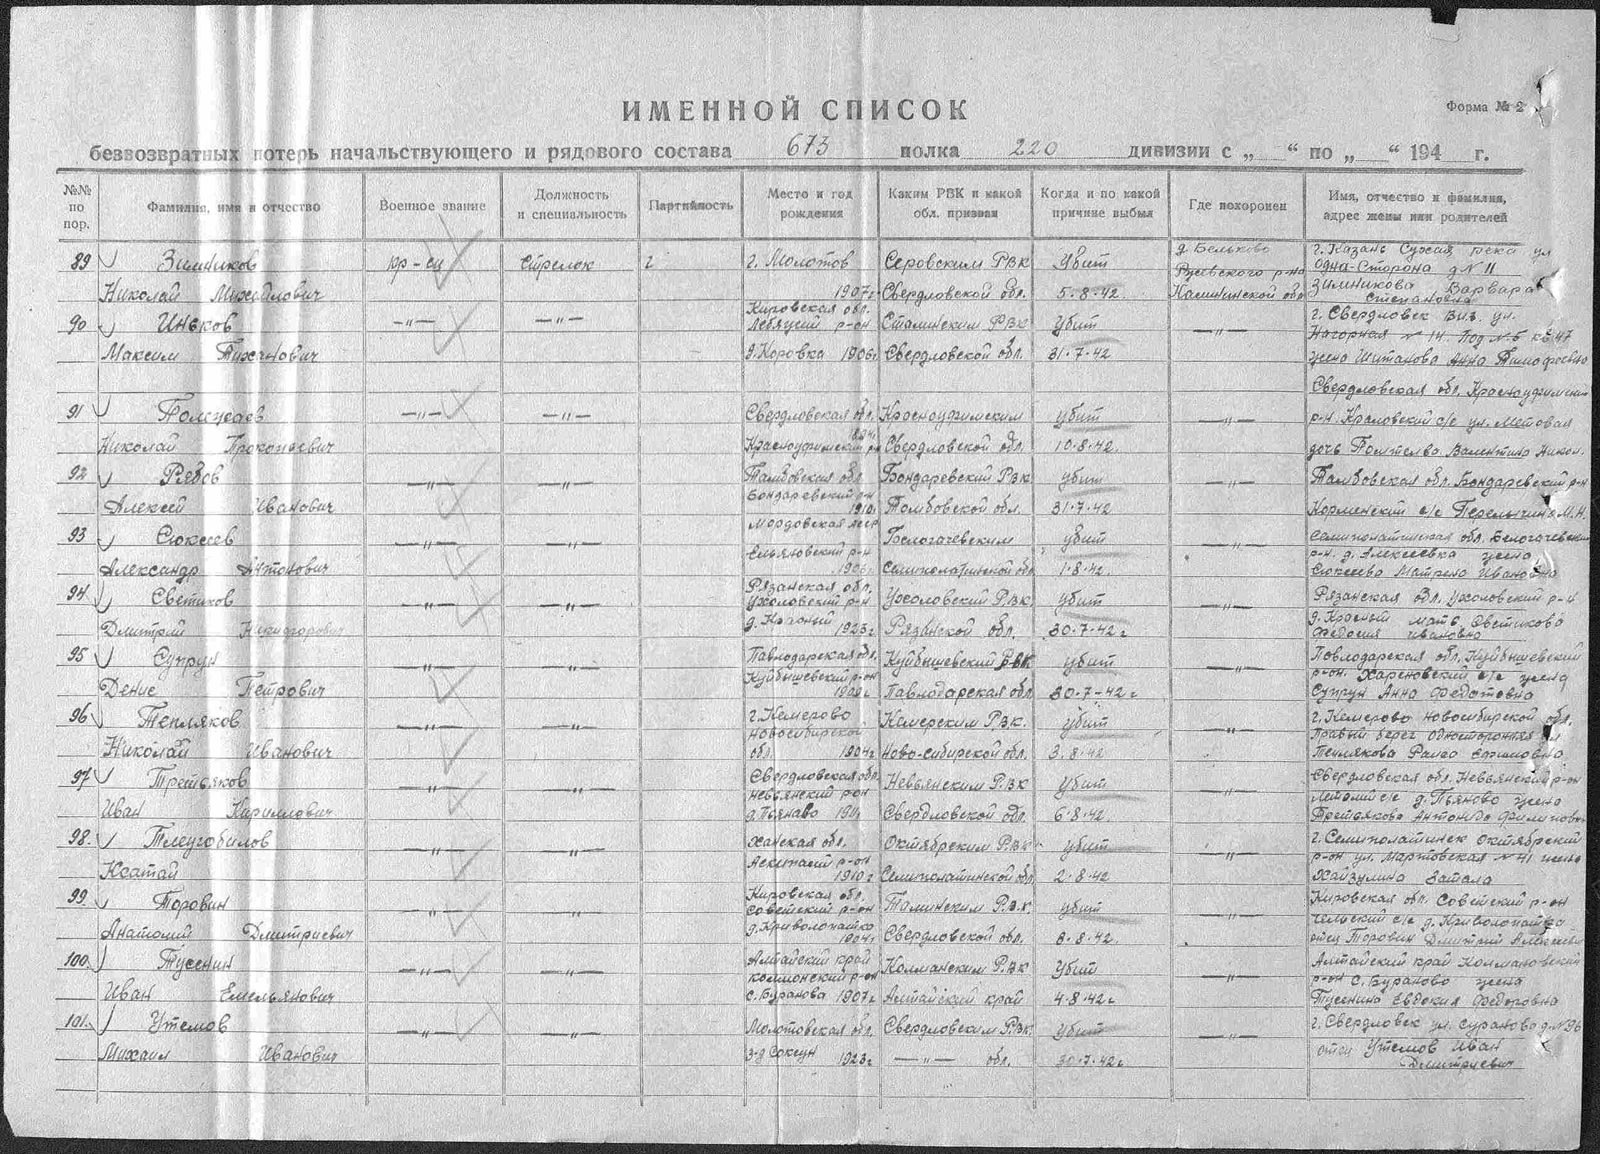 ИМЕННОЙ СПИСОК
Форма № 2
безвозвратных потерь начальствующего и рядового состава 673 полка 220 дивизии с „ “ по „ “ 194 г.
№№ по пор. Фамилия, имя и отчество Военное звание Должность и специальность Партийность Место и год рождения Каким РВК и какой обл. призван Когда и по какой причине выбыл Где похоронен Имя, отчество и фамилия, адрес жены или родителей
89 Зимников кр-ец стрелок г. Молотов Серовским РВК убит д. Бельково г. Казань Сухая река ул
Ржевского р-на Одна-Сторона д N 11
Николай Михайлович 1907г. Свердловской обл. 5.8.42. Калининской обл Зимникова Варвара
Степановна
90 Иньков —"— —"— Кировская обл. Сталинским РВК убит —"— г. Свердловск Виз. ул.
р-он Нагорная N 14 Под N 5 кв 47
Максим Тиханович д. Коровка 1906г Свердловской обл. 31.7.42 жена Анна Тимофеевна
Свердловская обл. Красноуфимский
91 —"— —"— Свердловская обл. Красноуфимским убит —"— р-н. с/с ул.
Николай Прокопьевич Красноуфимский р-н Свердловской обл. 10.8.42. дочь Валентина Никол.
92 Рябов —"— —"— Тамбовская обл Бондаревский РВК убит —"— Тамбовская обл. Бондаревский р-н
Бондаревский р-н
Алексей Иванович 1910г Тамбовской обл. 31.7.42 с/с М.Н.
93 Сюксев —"— —"— Мордовская убит —"— Семиполатинская обл.
р-н р-н. д. Алексеевка жена
Александр Антонович 1906г Семиполатинской обл 1.8.42. Матрена Ивановна
94 Светиков —"— —"— Рязанская обл. Ухоловский РВК убит —"— Рязанская обл. Ухоловский р-н
Ухоловский р-н д. Красный мать Светикова
Дмитрий Никифорович д. Красный 1923г Рязанской обл. 30.7.42г Федосия Ивановна
95 Супрун —"— —"— Павлодарская обл. Куйбышевский РВК. убит —"— Повлодарская обл. Куйбышевский
Куйбышевский р-он р-он. с/с жена
Денис Петрович Павлодарская обл 30.7-42г Супрун Анна Федотовна
96 Тепляков —"— —"— г. Кемерово Кемерским РВК. убит —"— г. Кемерово Новосибирской обл.
Новосибирской Правый берег Односторонняя ул
Николай Иванович обл. 1904г Ново-Сибирской обл. 3.8.42 Теплякова Ефимовна
97 Третьяков —"— —"— Свердловская обл. Невьянским РВК убит —"— Свердловская обл. Невьянский р-он
Невьянский р-он с/с жена
Иван Карилович Свердловской обл. 6.8.42. Третьякова Антонида Филиповна
98. Тлеугобилов —"— —"— обл. Октябрским РВК убит —"— г. Семиполатинск Октябрский
р-он р-он ул. Мартовская N 41 жена
Ксатай 1910г Семиполатинской обл 2.8.42 Хайзулина
99. Торовин —"— —"— Кировская обл. РВК убит —"— Кировская обл. Советский р-он
Советский р-он с/с д. Криволопатка
Анатолий Дмитриевич 1904г Свердловской обл. 8.8.42. отец Торовин Дмитрий Алексеев
100. Тусенин —"— —"— Алтайский край Колманским РВК Убит —"— Алтайский край Колмановский
р-он р-он с. Бураново жена
Иван Емельянович с. Буранова 1907г Алтайский край 4.8.42г Тусенина Евдокия Федоровна
101. Утемов —"— —"— Молотовская обл. Свердловским РВК. убит —"— г. Свердловск ул. д. N 96
Михаил Иванович 1923г —"— обл. 30.7.42г отец Утемов Иван
Дмитриевич